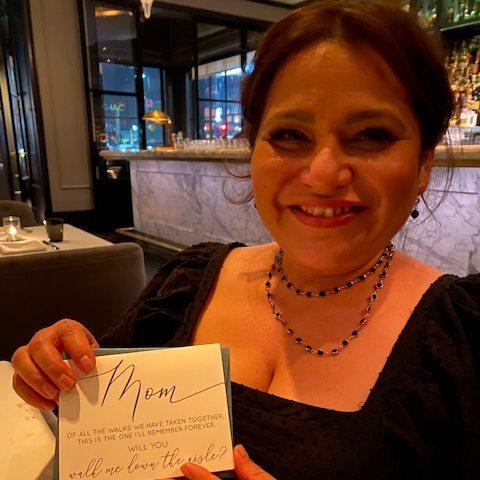 Mom
OF ALL THE WALKS WE HAVE TAKEN TOGETHER,
THIS IS THE ONE I'LL REMEMBER FOREVER.
WILL YOU
walk me down the aisle?